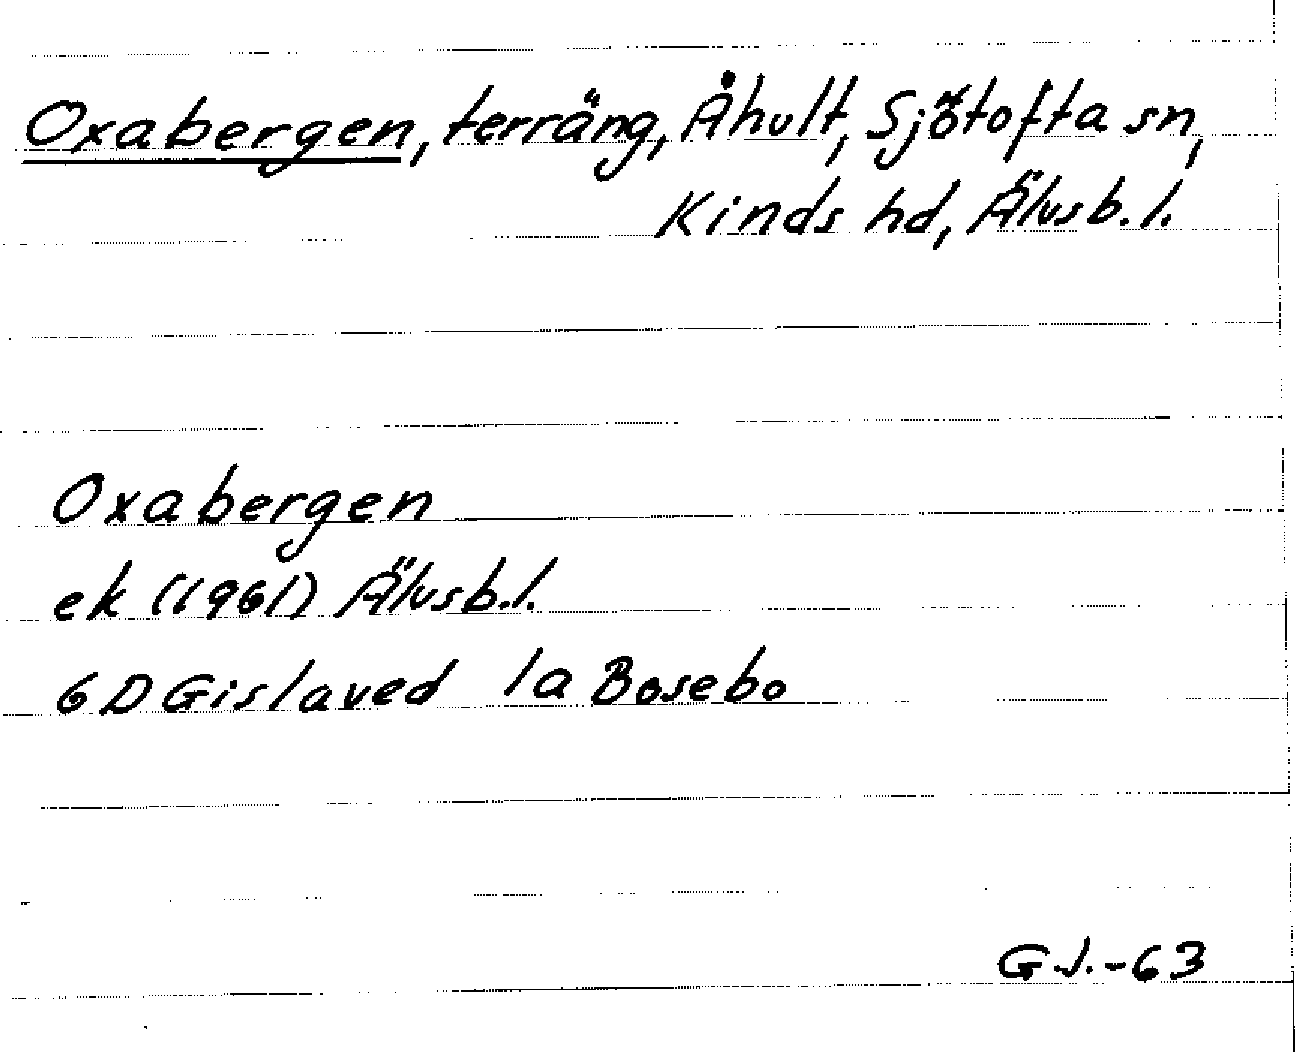 Oxabergen, terräng, Åhult, Sjötofta sn,
Kinds hd, Älvsb. l.
Oxabergen
ek (1961) Älvsb. l.
6D Gislaved 1a Bosebo
GJ.-63